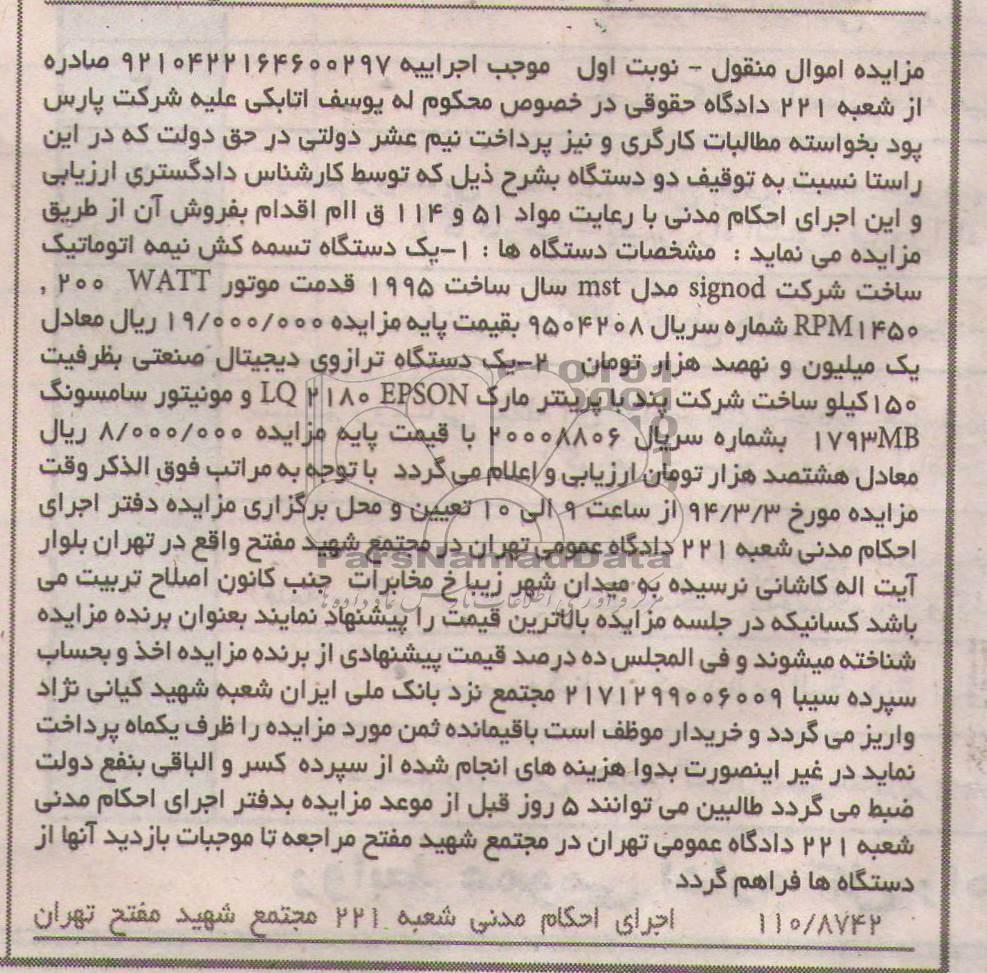 مزایده اموال منقول - نوبت اول موجب اجراییه ۹۲۱۰۴۲۲۱۶۴۶۰۰۲۹۷ صادره
از شعبه ۲۲۱ دادگاه حقوقی در خصوص محکوم له یوسف اتابکی علیه شرکت پارس
پود بخواسته مطالبات کارگری و نیز پرداخت نیم عشر دولتی در حق دولت که در این
راستا نسبت به توقیف دو دستگاه بشرح ذیل که توسط کارشناس دادگستری ارزیابی
و این اجرای احکام مدنی با رعایت مواد ۵۱ و ۱۱۴ ق اام اقدام بفروش آن از طریق
مزایده می نماید : مشخصات دستگاه ها : ۱-یک دستگاه تسمه کش نیمه اتوماتیک
ساخت شرکت signod مدل mst سال ساخت ۱۹۹۵ قدمت موتور WATT ۲۰۰ ,
RPM۱۴۵۰ شماره سریال ۹۵۰۴۲۰۸ بقیمت پایه مزایده ۱۹/۰۰۰/۰۰۰ ریال معادل
یک میلیون و نهصد هزار تومان ۲-یک دستگاه ترازوی دیجیتال صنعتی بظرفیت
۱۵۰کیلو ساخت شرکت پند با پرینتر مارک LQ ۲۱۸۰ EPSON و مونیتور سامسونگ
۱۷۹۳MB بشماره سریال ۲۰۰۰۸۸۰۶ با قیمت پایه مزایده ۸/۰۰۰/۰۰۰ ریال
معادل هشتصد هزار تومان ارزیابی و اعلام می گردد با توجه به مراتب فوق الذکر وقت
مزایده مورخ ۹۴/۳/۳ از ساعت ۹ الی ۱۰ تعیین و محل برگزاری مزایده دفتر اجرای
احکام مدنی شعبه ۲۲۱ دادگاه عمومی تهران در مجتمع شهید مفتح واقع در تهران بلوار
ParsNamadData
آیت اله کاشانی نرسیده به میدان شهر زیبا خ مخابرات جنب کانون اصلاح تربیت می
باشد کسانیکه در جلسه مزایده بالاترین قیمت را پیشنهاد نمایند بعنوان برنده مزایده
شناخته میشوند و فی المجلس ده درصد قیمت پیشنهادی از برنده مزایده اخذ و بحساب
سپرده سیبا ۲۱۷۱۲۹۹۰۰۶۰۰۹ مجتمع نزد بانک ملی ایران شعبه شهید کیانی نژاد
واریز می گردد و خریدار موظف است باقیمانده ثمن مورد مزایده را ظرف یکماه پرداخت
نماید در غیر اینصورت بدوا هزینه های انجام شده از سپرده کسر و الباقی بنفع دولت
ضبط می گردد طالبین می توانند ۵ روز قبل از موعد مزایده بدفتر اجرای احکام مدنی
شعبه ۲۲۱ دادگاه عمومی تهران در مجتمع شهید مفتح مراجعه تا موجبات بازدید آنها از
دستگاه ها فراهم گردد
۱۱۰/۸۷۴۲ اجرای احکام مدنی شعبه ۲۲۱ مجتمع شهید مفتح تهران